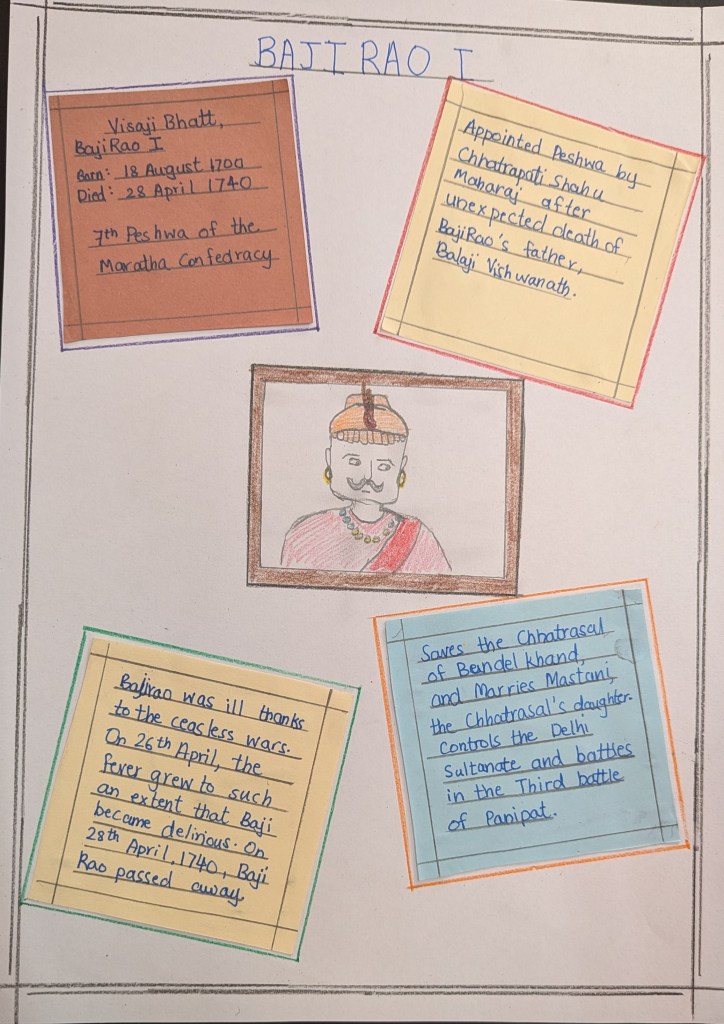 BAJI RAO I
Visaji Bhatt,
BajiRao I
Born: 18 August 1700
Died: 28 April 1740
7th Peshwa of the
Maratha Confedracy
Appointed Peshwa by
Chhatrapati Shahu
Maharaj after
unexpected death of
BajiRao's father,
Balaji Vishwanath.
Saves the Chhatrasal
of Bundelkhand,
and Marries Mastani,
the Chhatrasal's daughter.
Controls the Delhi
Sultanate and battles
in the Third battle
of Panipat.
Bajirao was ill thanks
to the ceasless wars.
On 26th April, the
fever grew to such
an extent that Baji
became delirious. On
28th April, 1740, Baji
Rao passed away.